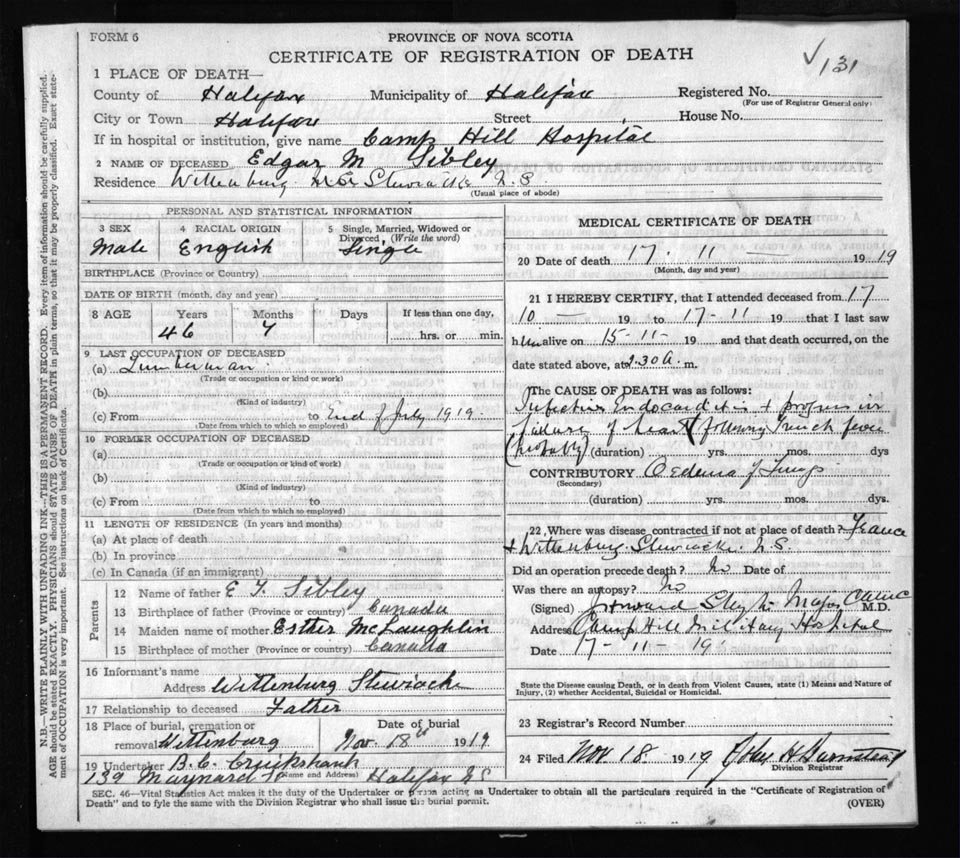 FORM 6
PROVINCE OF NOVA SCOTIA
CERTIFICATE OF REGISTRATION OF DEATH
131
1 PLACE OF DEATH—
County of Halifax Municipality of Halifax Registered No.
(For use of Registrar General only)
City or Town Halifax Street House No.
If in hospital or institution, give name Camp Hill Hospital
2 NAME OF DECEASED Edgar M Sibley
Residence Wittenburg Stewiacke N.S
(Usual place of abode)
PERSONAL AND STATISTICAL INFORMATION
3 SEX 4 RACIAL ORIGIN 5 Single, Married, Widowed or Divorced, (Write the word)
Male English Single
BIRTHPLACE (Province or Country)
DATE OF BIRTH (month, day and year)
8 AGE Years Months Days If less than one day,
46 7 hrs. or min.
9 LAST OCCUPATION OF DECEASED
(a) Lumberman
(Trade or occupation or kind or work)
(b)
(Kind of industry)
(c) From to End of July 1919.
(Date from which to which so employed)
10 FORMER OCCUPATION OF DECEASED
(a)
(Trade or occupation or kind of work)
(b)
(Kind of industry)
(c) From to
(Date from which to which so employed)
11 LENGTH OF RESIDENCE (In years and months)
(a) At place of death
(b) In province
(c) In Canada (if an immigrant)
Parents
12 Name of father E T. Sibley
13 Birthplace of father (Province or country) Canada
14 Maiden name of mother Esther McLaughlin
15 Birthplace of mother (Province or country) Canada
16 Informant's name
Address Wittenburg Stewiacke
17 Relationship to deceased Father
18 Place of burial, cremation or removal Wittenburg Date of burial Nov. 18th 1919
19 Undertaker B. C. Cruikshank
139 Maynard St (Name and Address) Halifax NS
MEDICAL CERTIFICATE OF DEATH
20 Date of death 17 . 11 — 1919
(Month, day and year)
21 I HEREBY CERTIFY, that I attended deceased from 17
10 — 19 to 17-11 19 that I last saw
him alive on 15-11- 19 and that death occurred, on the
date stated above, at 2.30 a. m.
The CAUSE OF DEATH was as follows:
Infective Endocarditis & progressive
failure of heart (following trench fever
(probably) (duration) yrs. mos. dys
CONTRIBUTORY Oedema of Lungs
(Secondary)
(duration) yrs. mos. dys.
22 Where was disease contracted if not at place of death? France
& Wittenburg. Stewiacke. N.S.
Did an operation precede death? No Date of
Was there an autopsy? No
(Signed) Major M.D.
Address Camp Hill Military Hospital
Date 17-11-19
State the Disease causing Death, or in death from Violent Causes, state (1) Means and Nature of
Injury, (2) whether Accidental, Suicidal or Homicidal.
23 Registrar's Record Number
24 Filed Nov 18 1919
Division Registrar
SEC. 46—Vital Statistics Act makes it the duty of the Undertaker or person acting as Undertaker to obtain all the particulars required in the "Certificate of Registration of
Death" and to fyle the same with the Division Registrar who shall issue the burial permit.
(OVER)
N.B.—WRITE PLAINLY WITH UNFADING INK—THIS IS A PERMANENT RECORD. Every item of information should be carefully supplied.
AGE should be stated EXACTLY. PHYSICIANS should STATE CAUSE OF DEATH in plain terms, so that it may be properly classified. Exact state-
ment of OCCUPATION is very important. See instructions on back of Certificate.